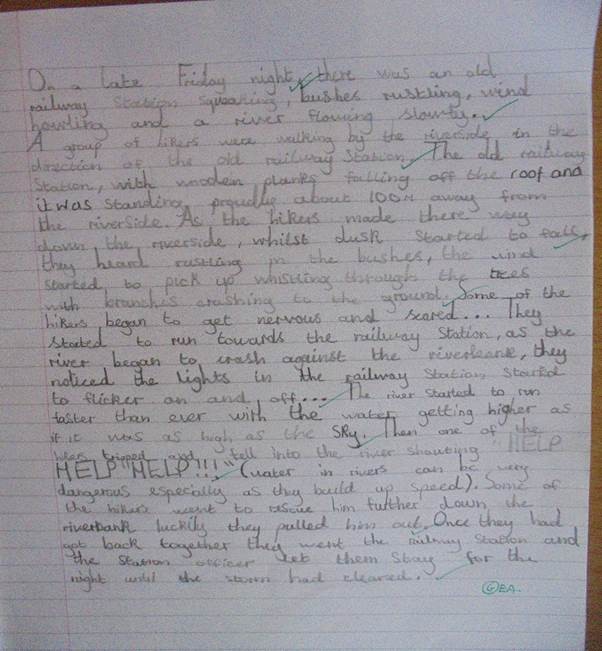 On a late Friday night, there was an old
railway station squeaking, bushes rustling, wind
howling and a river flowing slowly.
A group of hikers were walking by the riverside in the
direction of the old railway station. The old railway
station, with wooden planks falling off the roof and
it was standing proudly about 100m away from
the riverside. As the hikers made there way
down the riverside, whilst dusk started to fall,
they heard rustling in the bushes, the wind
started to pick up whistling through the trees
with branches crashing to the ground. Some of the
hikers began to get nervous and scared... They
started to run towards the railway station, as the
river began to crash against the riverbank, they
noticed the lights in the railway station started
to flicker on and off... The river started to run
faster than ever with the water getting higher as
if it was as high as the sky. Then one of the
tripped and fell into the river shouting "HELP
HELP "HELP!!!" (water in rivers can be very
dangerous especially as they build up speed). Some of
the hikers went to rescue him further down the
riverbank luckily they pulled him out. Once they had
got back together they went the railway station and
the station officer let them stay for the
night until the storm had cleared.